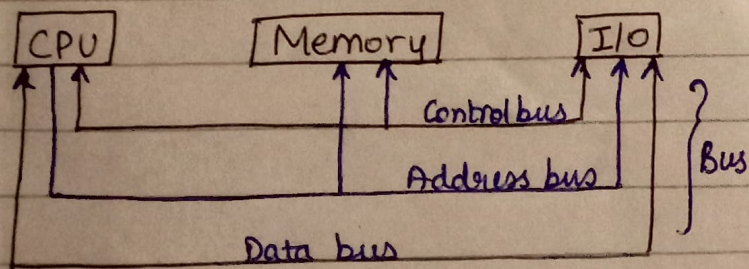 CPU
Memory
I/O
Control bus
Address bus
Bus
Data bus